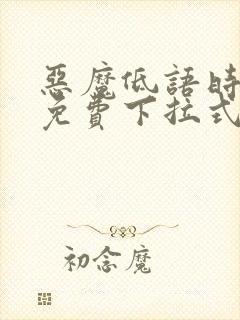 惡魔低語時
免費下拉式
初念魔